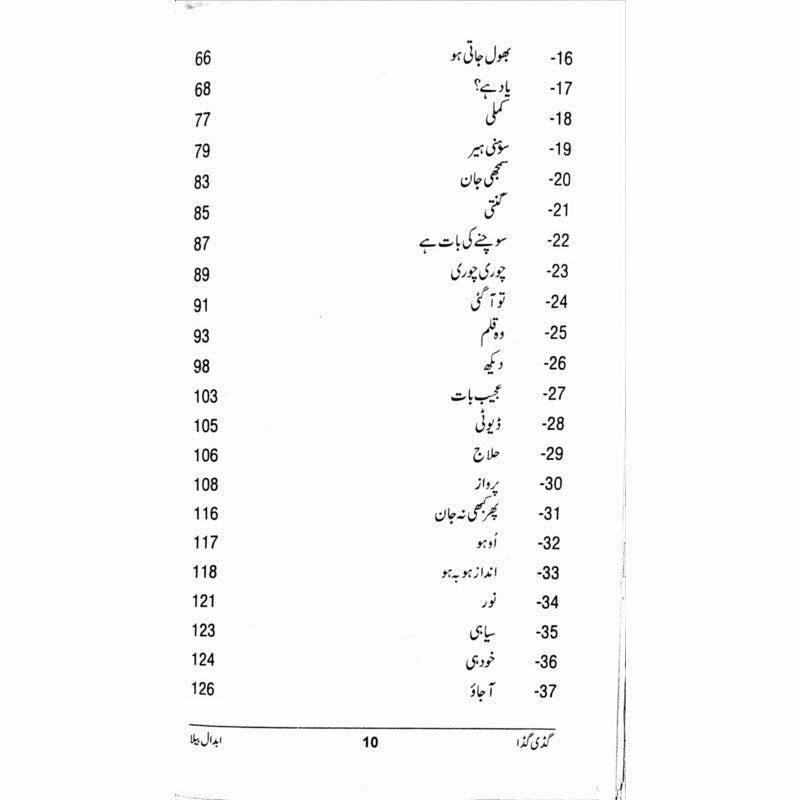 16- بھول جاتی ہو 66
17- یاد ہے؟ 68
18- کملی 77
19- سوہنی ہیر 79
20- سمجھی جان 83
21- گنتی 85
22- سوچنے کی بات ہے 87
23- چوری چوری 89
24- تو آ گئی 91
25- وہ قلم 93
26- دیکھ 98
27- عجیب بات 103
28- ڈیوٹی 105
29- حلاج 106
30- پرواز 108
31- پھر کبھی نہ جان 116
32- اُوہو 117
33- انداز ہو بہ ہو 118
34- نور 121
35- سیاہی 123
36- خود ہی 124
37- آ جاؤ 126
گڈی گڈا 10 ابدال بیلا